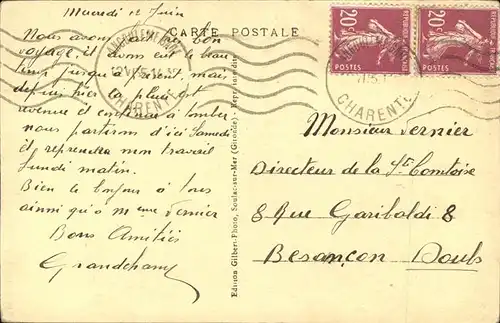 Mercredi 12 Juin
CARTE POSTALE
Nous avons fait un bon
voyage, il avons eut le beau
temp jusqu'à present, mai,
depuis hier la pluie est
revenue et continue à tomber
nous partirons d'ici Samedi
et reprendrai mon travail
Lundi matin.
Bien le bonjour à tous
ainsi qu'a Mme Vernier
Bons Amitiés
Grandchamp
Edition Gilbert-Photo, Soulac-sur-Mer (Gironde) - Repr. interdite
ANGOULEME GARE
CHARENTE
20c
POSTES
REPUBLIQUE FRANÇAISE
20c
POSTES
CHARENTE
Monsieur Vernier
Directeur de la Sté Comtoise
8 Rue Garibaldi 8
Besançon Doubs